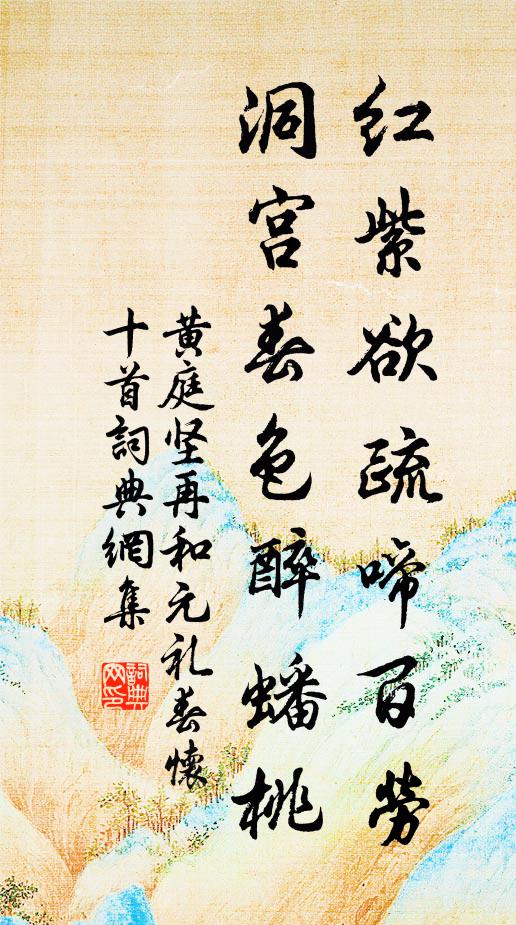 红紫欲疏啼百劳
洞宫春色醉蟠桃
黄庭坚再和元礼春懷
十首詞典網集
詞典網印